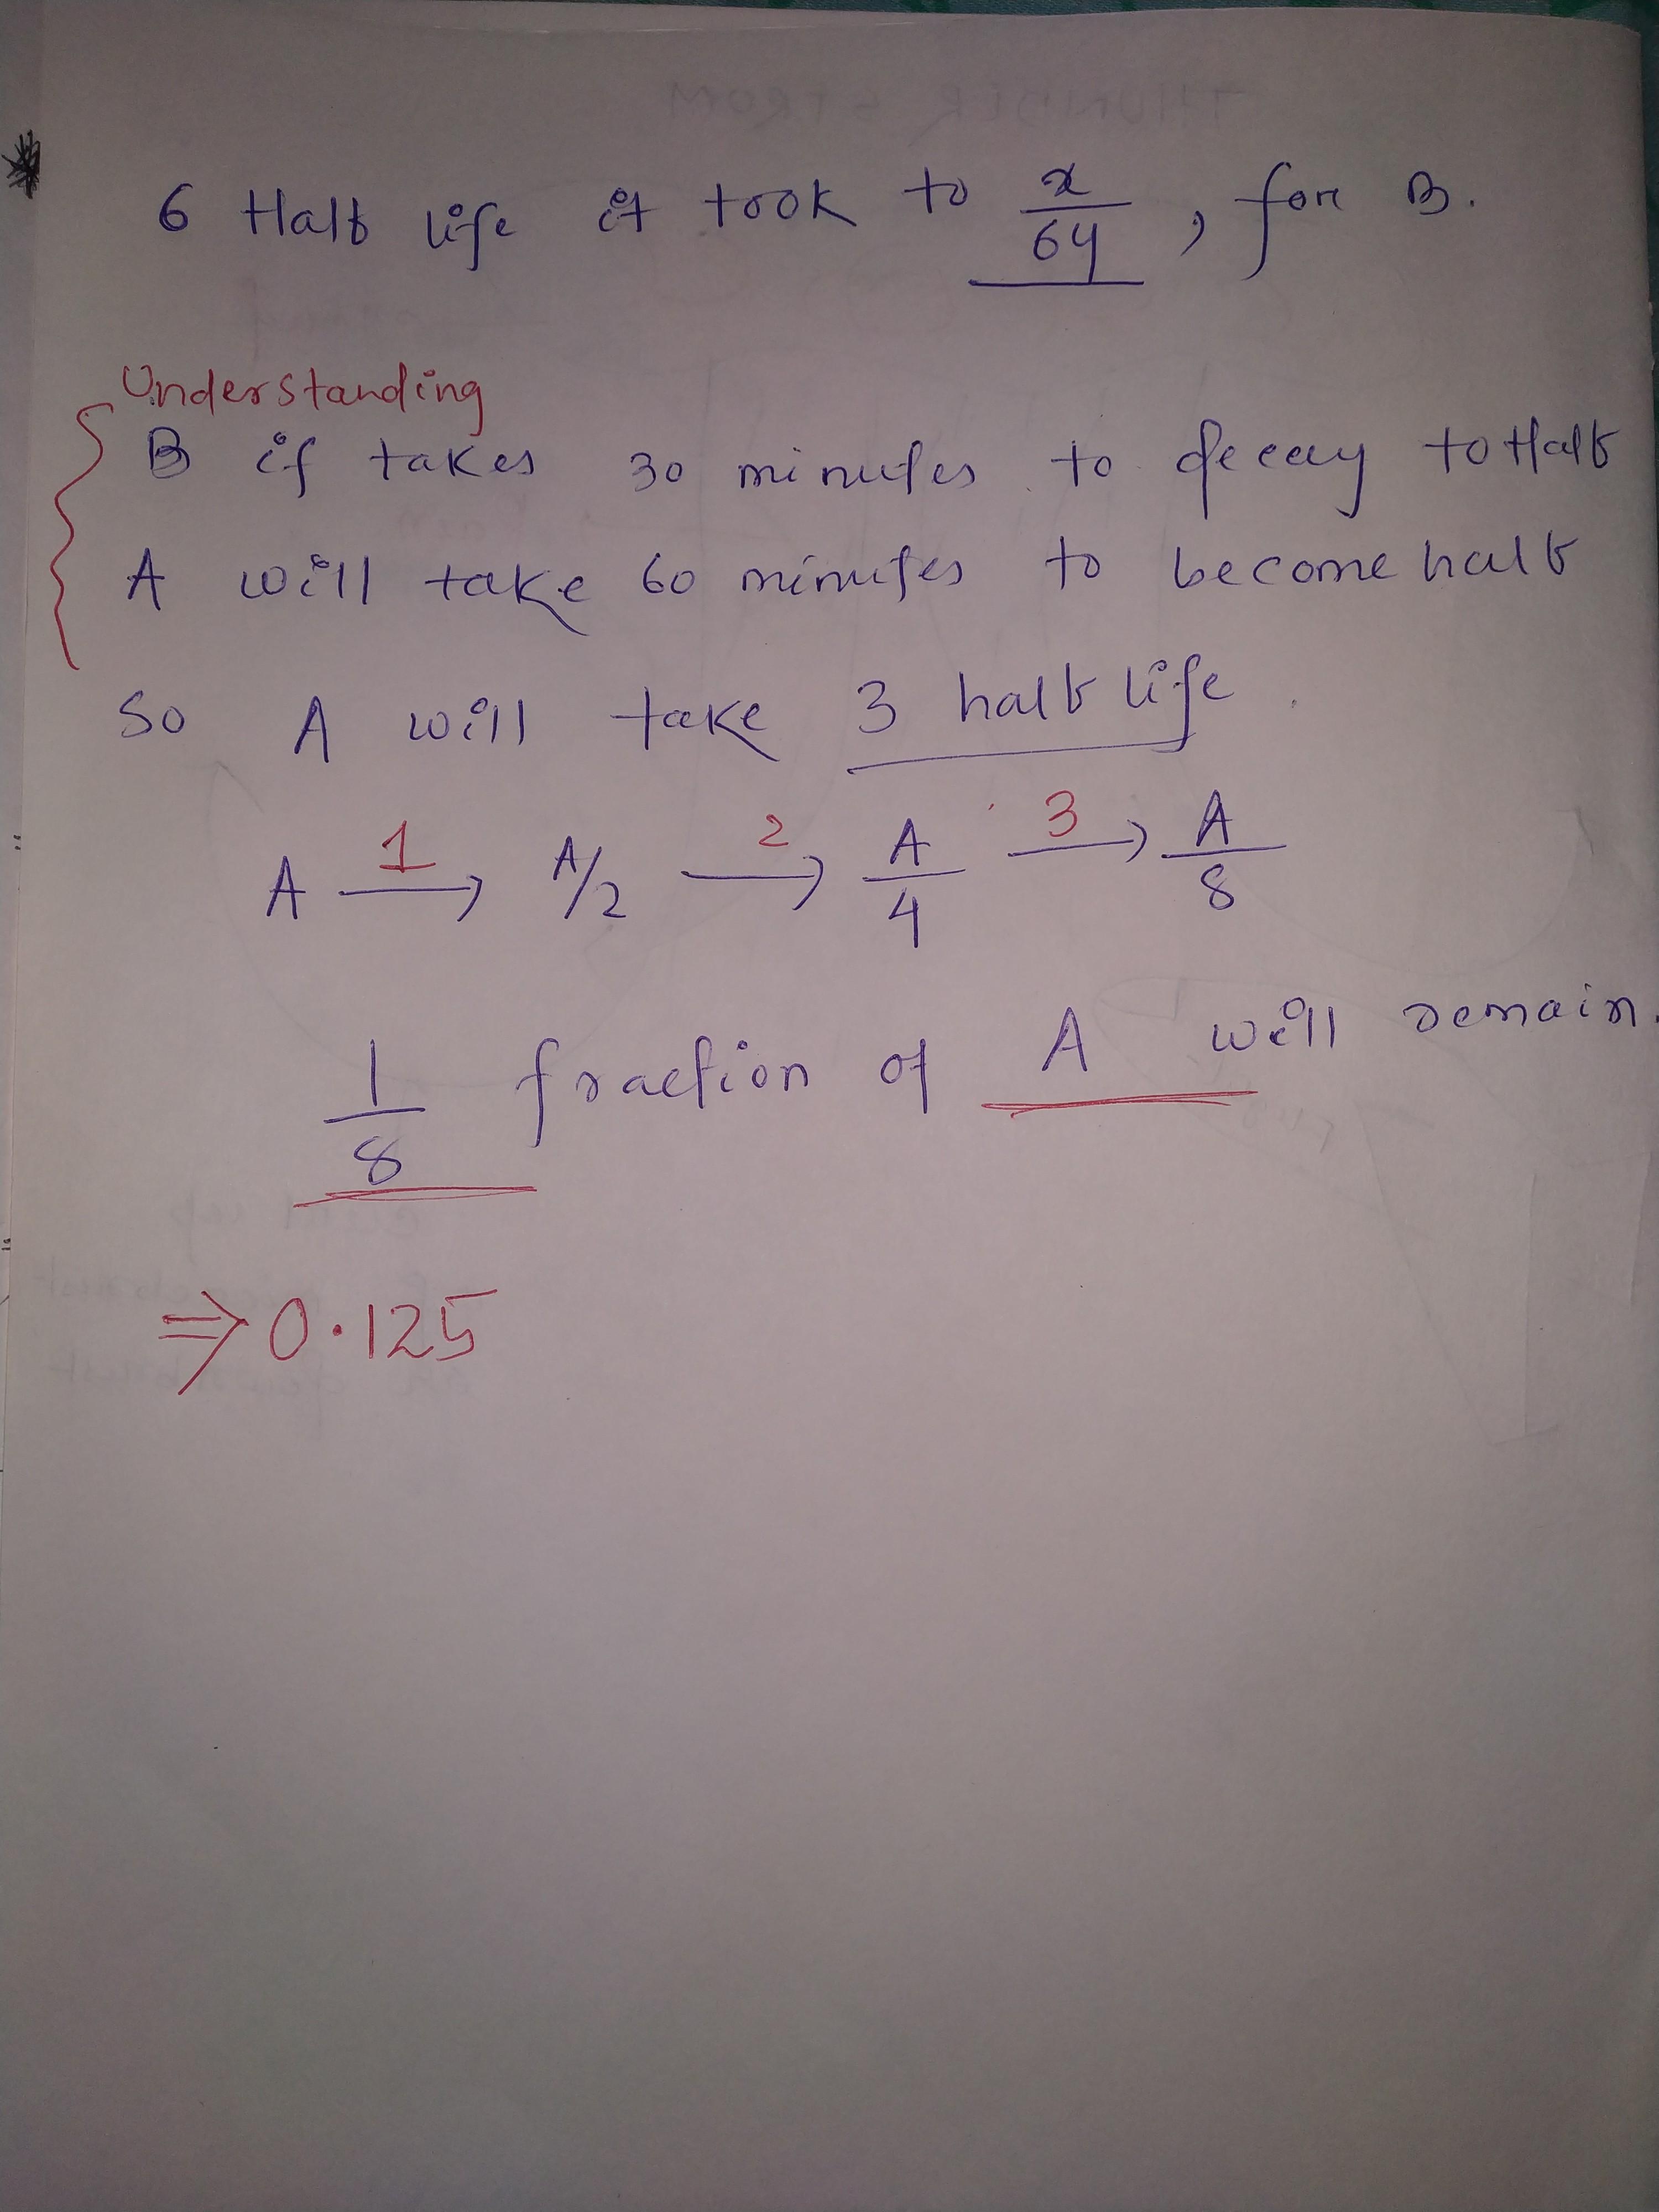 6 Half life it took to x/64, for B.
Understanding
B if takes 30 minutes to decay to Half
A will take 60 minutes to become half
So A will take 3 half life.
A 1→ A/2 2→ A/4 3→ A/8
1/8 fraction of A will remain.
⇒ 0.125